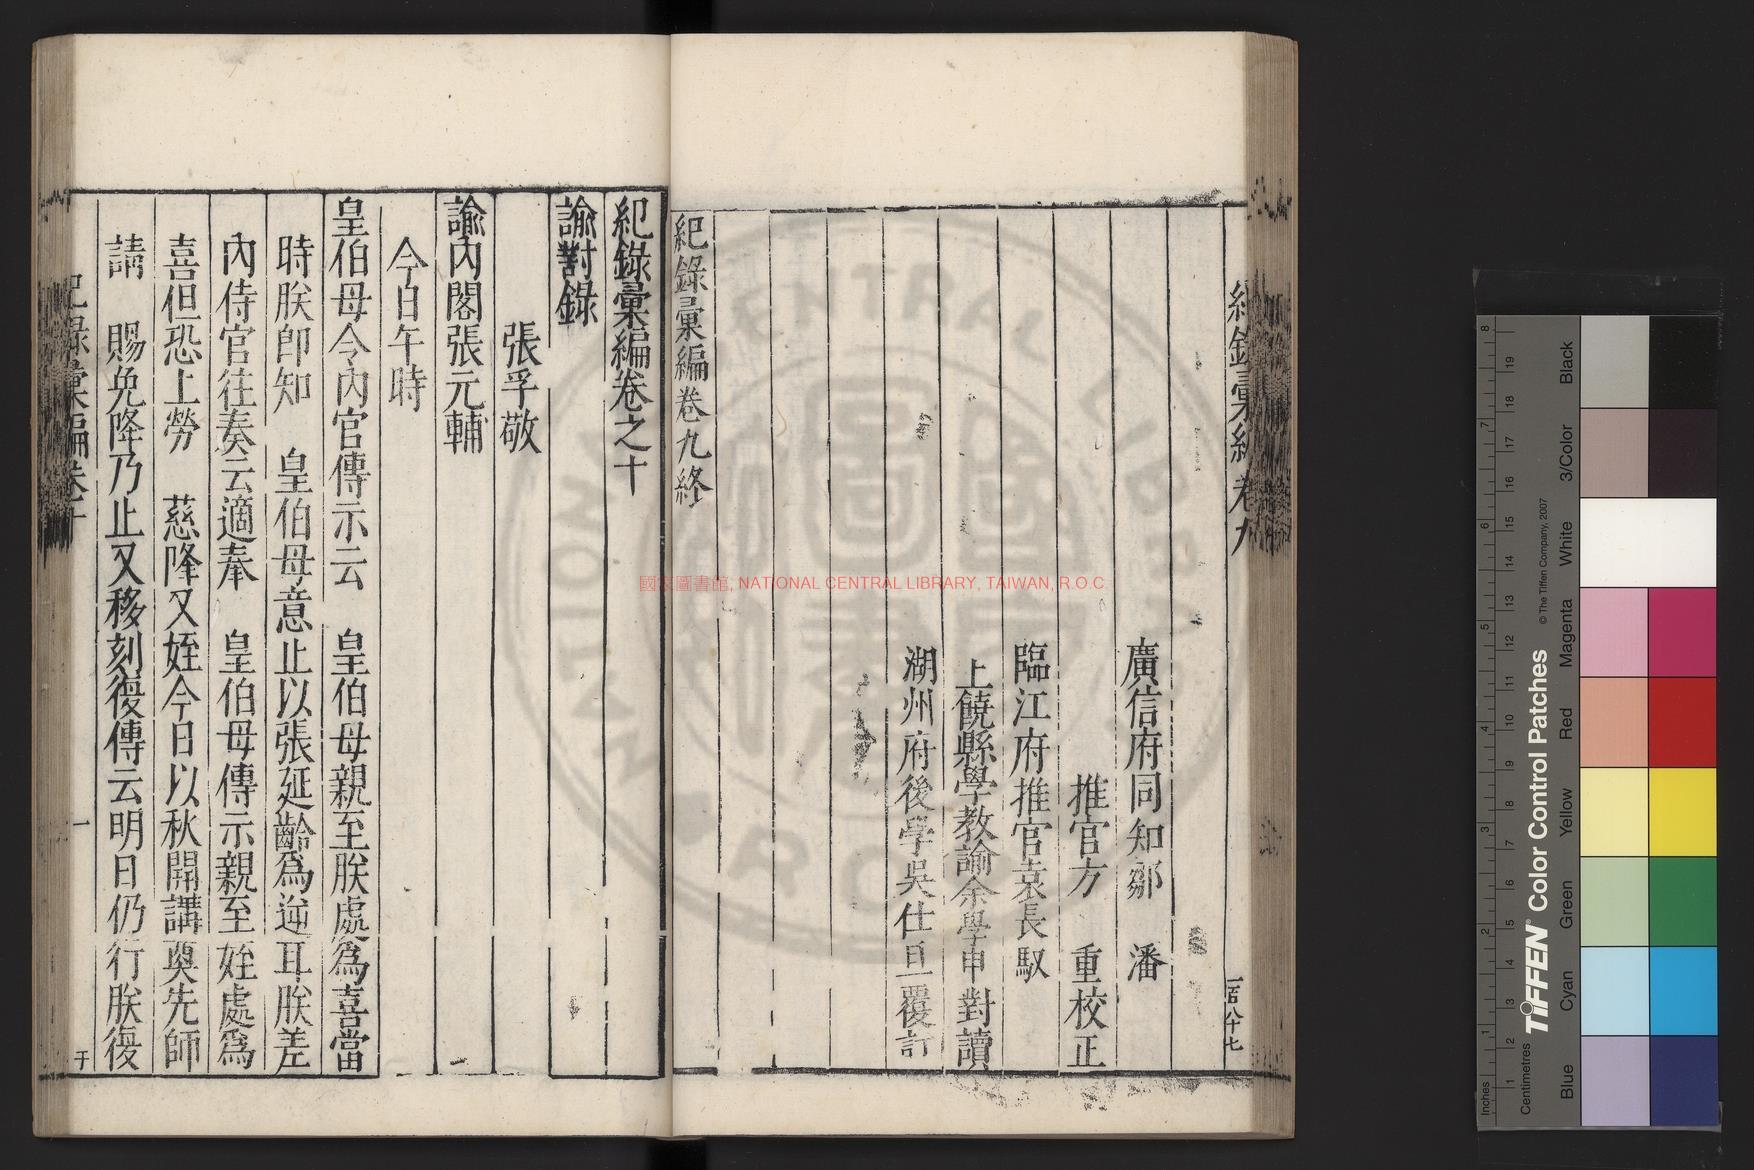 紀錄彙編卷九
一百八十七
廣信府同知鄒　潘
推官方　重校正
臨江府推官袁長馭
上饒縣學教諭余學申對讀
湖州府後學吳仕旦覆訂
紀錄彙編卷九終
紀錄彙編卷之十
諭對錄
張孚敬
諭內閣張元輔
今日午時
皇伯母令內官傳示云　皇伯母親至朕處為喜當
時朕即知　皇伯母意止以張延齡為逆耳朕差
內侍官往奏云適奉　皇伯母傳示親至姪處為
喜但恐上勞　慈降又姪今日以秋開講奠先師
請　賜免降乃止又移刻復傳云明日仍行朕復
紀錄彙編卷十
一
國家圖書館, NATIONAL CENTRAL LIBRARY, TAIWAN, R.O.C
TIFFEN® Color Control Patches
© The Tiffen Company, 2007
Inches
Centimetres
Blue
Cyan
Green
Yellow
Red
Magenta
White
3/Color
Black